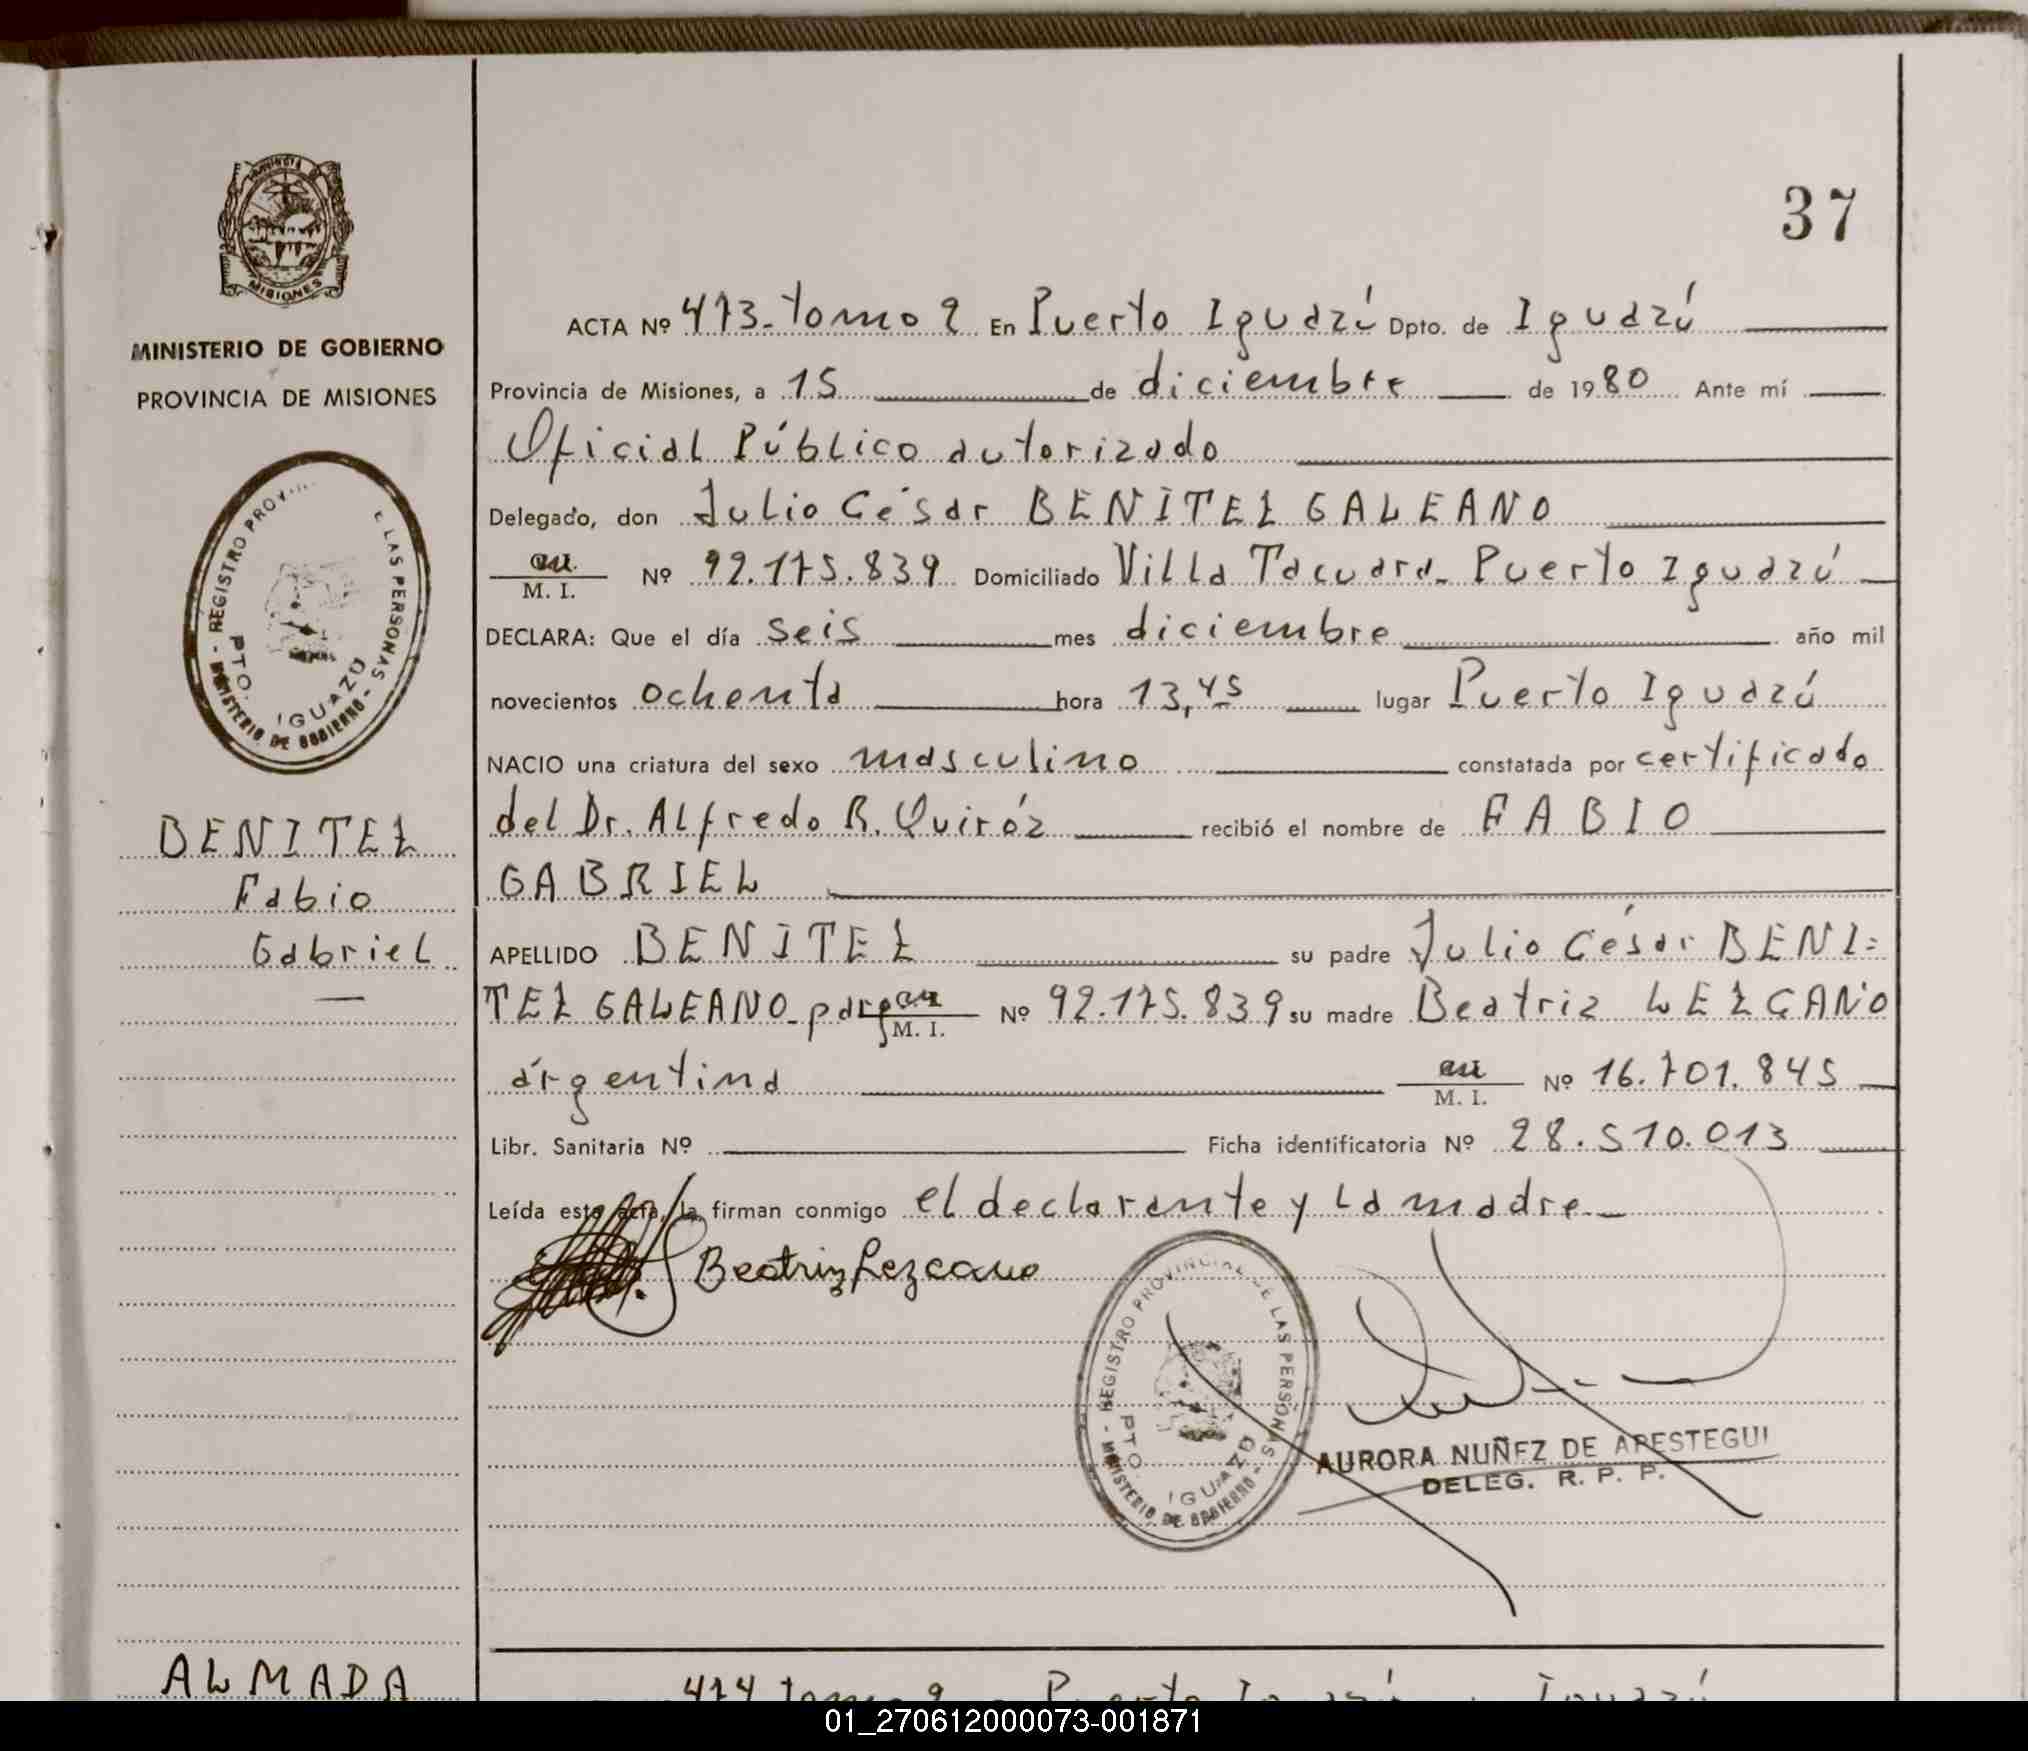 37
ACTA Nº 473-tomo 2 En Puerto Iguazú Dpto. de Iguazú
MINISTERIO DE GOBIERNO
PROVINCIA DE MISIONES
Provincia de Misiones, a 15 de diciembre de 1980 Ante mí
Oficial Público autorizado
Delegado, don Julio César BENITEZ GALEANO
M. I. Nº 92.175.839 Domiciliado Villa Tacuara- Puerto Iguazú
DECLARA: Que el día seis mes diciembre año mil
novecientos ochenta hora 13,45 lugar Puerto Iguazú
NACIO una criatura del sexo masculino constatada por certificado
del Dr. Alfredo R. Quiróz recibió el nombre de FABIO
GABRIEL
BENITEZ
Fabio
Gabriel
APELLIDO BENITEZ su padre Julio César BENI=
TEZ GALEANO-parg M. I. Nº 92.175.839 su madre Beatriz LEZCANO
argentina M. I. Nº 16.701.845
Libr. Sanitaria Nº Ficha identificatoria Nº 28.510.013
Leída esta acta, la firman conmigo el declarante y la madre.-
Beatriz Lezcano
REGISTRO PROVINCIAL DE LAS PERSONAS - MINISTERIO DE GOBIERNO -
PTO. IGUAZU
AURORA NUÑEZ DE ARESTEGUI
DELEG. R. P. P.
ALMADA
474 tomo 2 Puerto Iguazú Iguazú
01_270612000073-001871